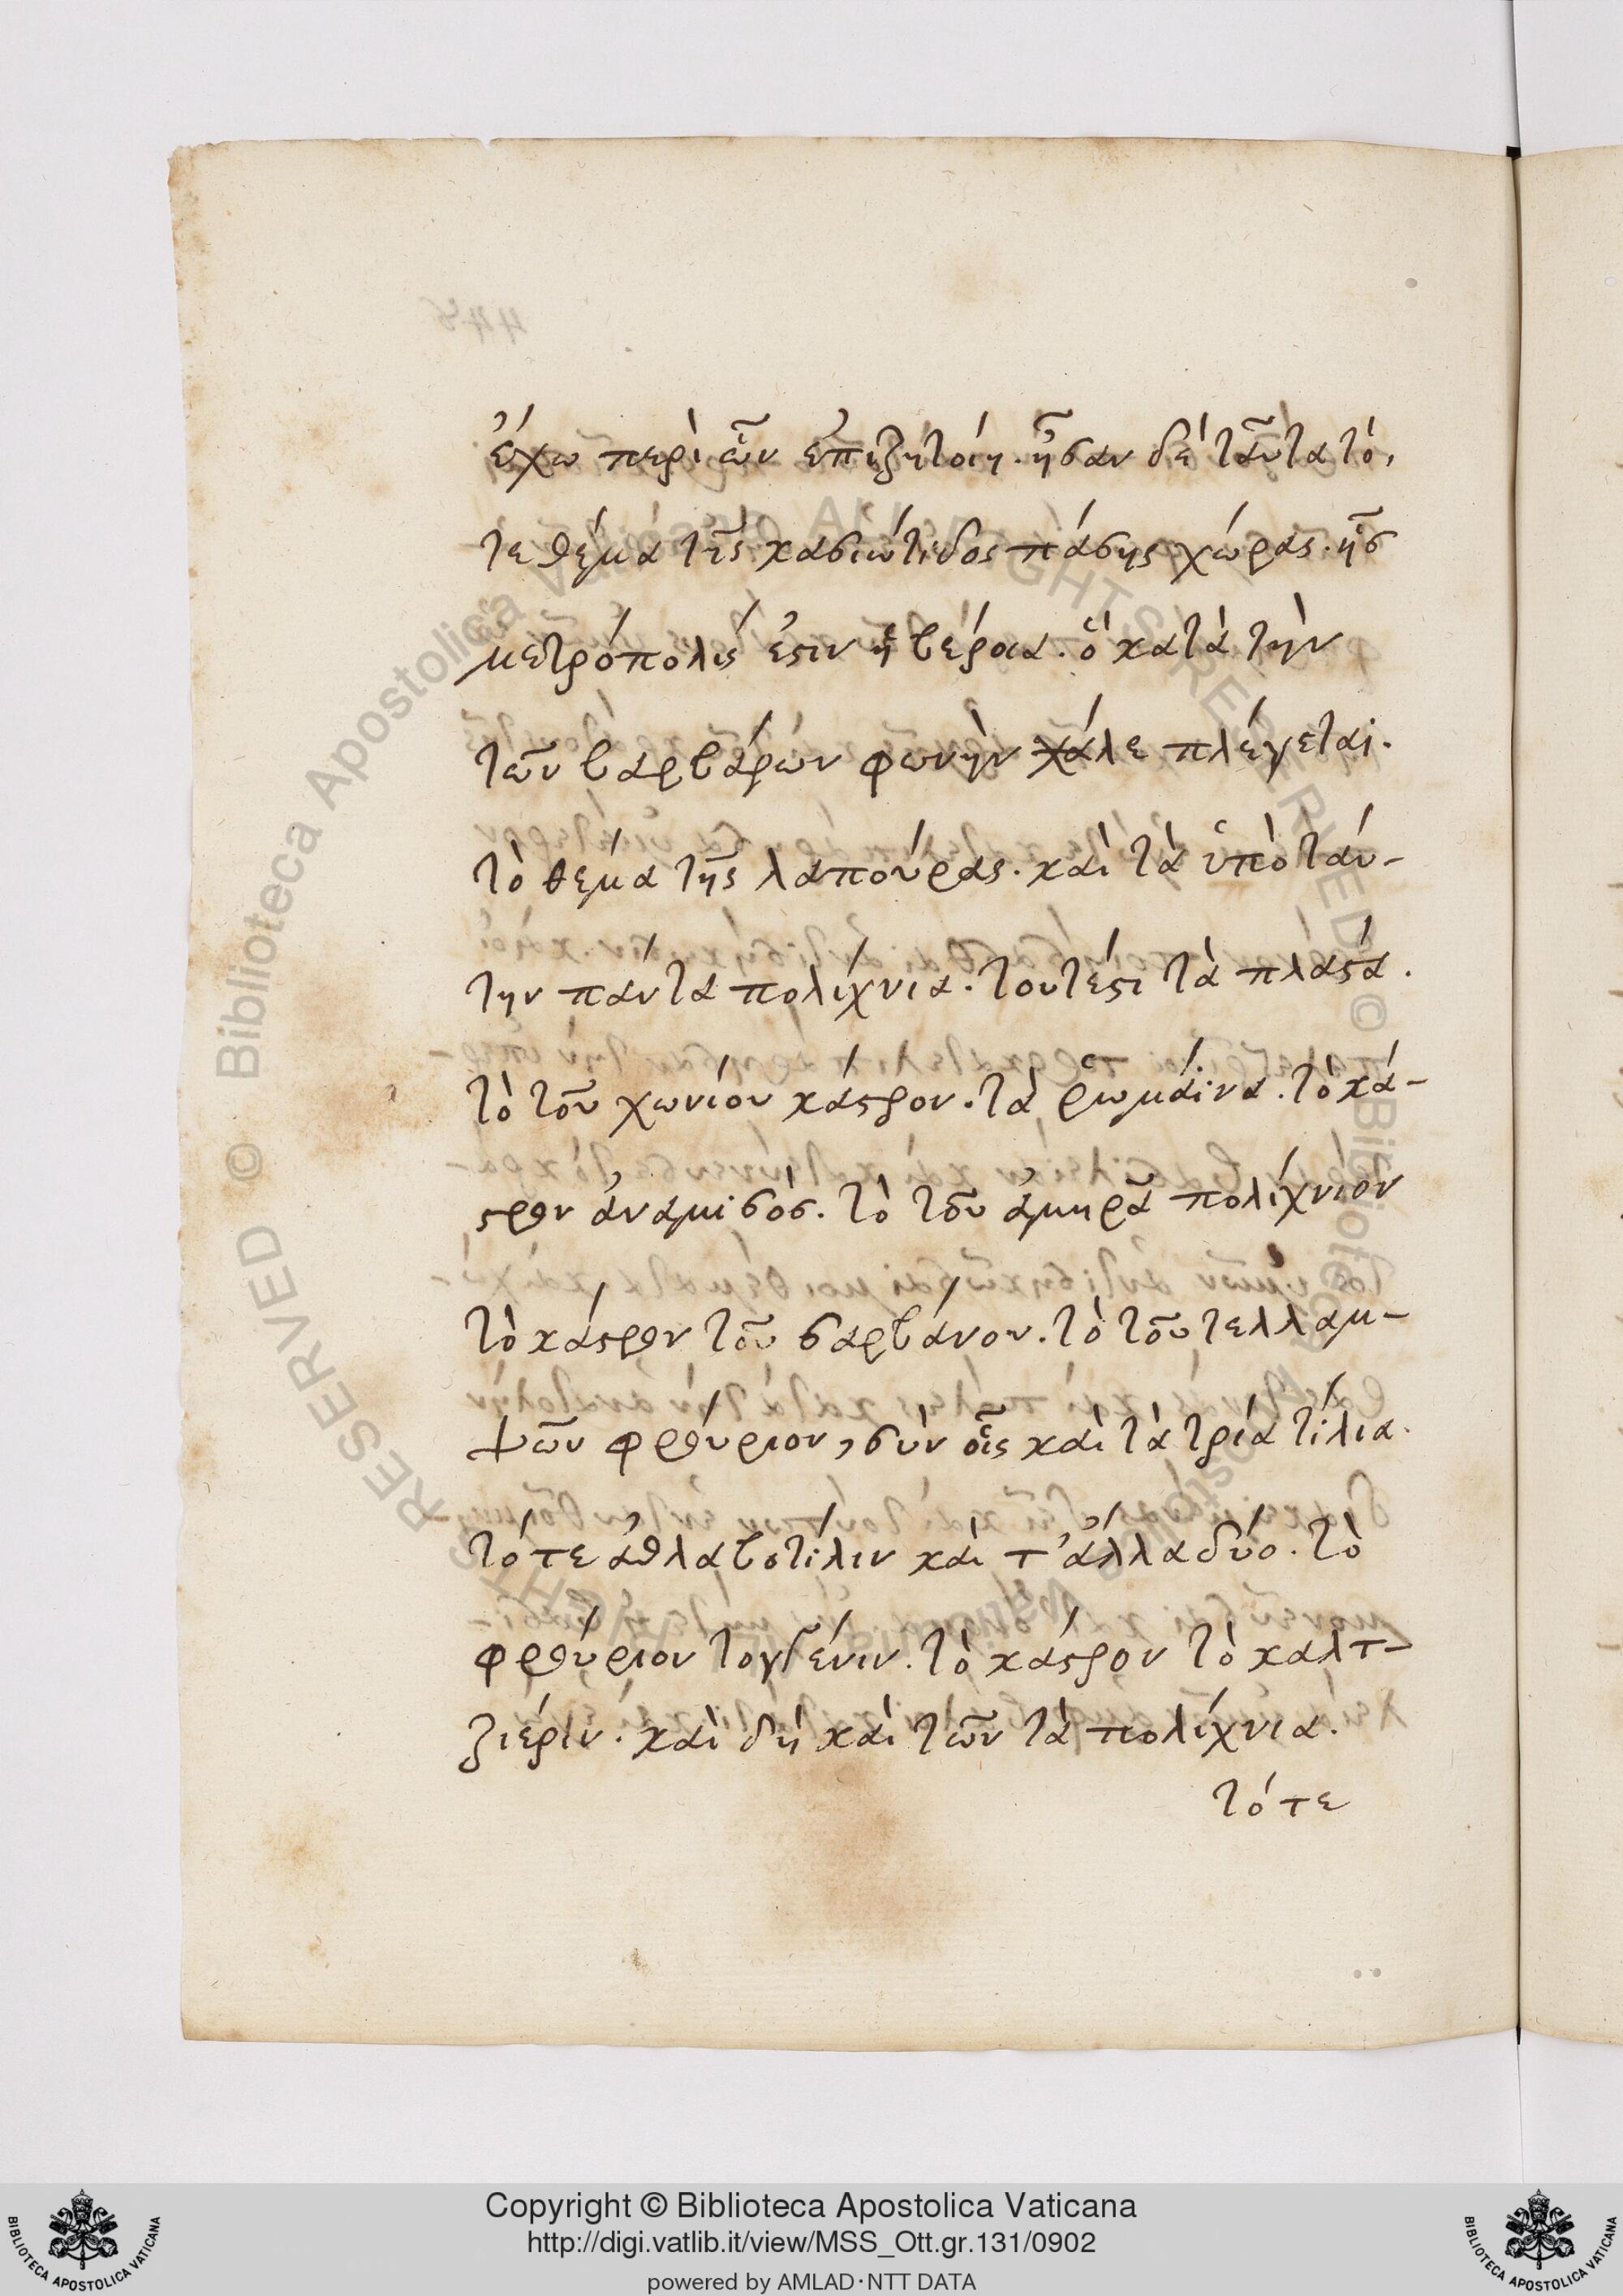 ἔχω περὶ ὧν ἐπιζητοίη. ἦσαν δὲ ταῦτα τό,
τε θέμα τῆς κασιώτιδος πάσης χώρας. ἧς
μετρόπολίς ἐστιν ἡ βέροια. ὃ κατὰ τὴν
τῶν βαρβάρων φωνὴν χάλεπ λέγεται.
τὸ θέμα τῆς λαπούρας. καὶ τὰ ὑπὸ ταύ-
την πάντα πολίχνια. τουτέστι τὰ πλαστά.
τὸ τοῦ χωνίου κάστρον. τὰ ῥωμάϊνα. τὸ κά-
στρον ἀναμισός. τὸ τοῦ ἀμηρᾶ πολίχνιον
τὸ κάστρον τοῦ σαρβάνου. τὸ τοῦ τελλαμ-
ψῶν φρούριον, σὺν οἷς καὶ τὰ τρία τίλια.
τό τε ἀθλαβοτίλιν καὶ τ'ἄλλα δύο. τὸ
φρούριον τογδένιν. τὸ κάστρον τὸ καλτ-
ζιέριν. καὶ δὴ καὶ τῶν τὰ πολίχνια.
τό τε
Copyright © Biblioteca Apostolica Vaticana
http://digi.vatlib.it/view/MSS_Ott.gr.131/0902
powered by AMLAD·NTT DATA